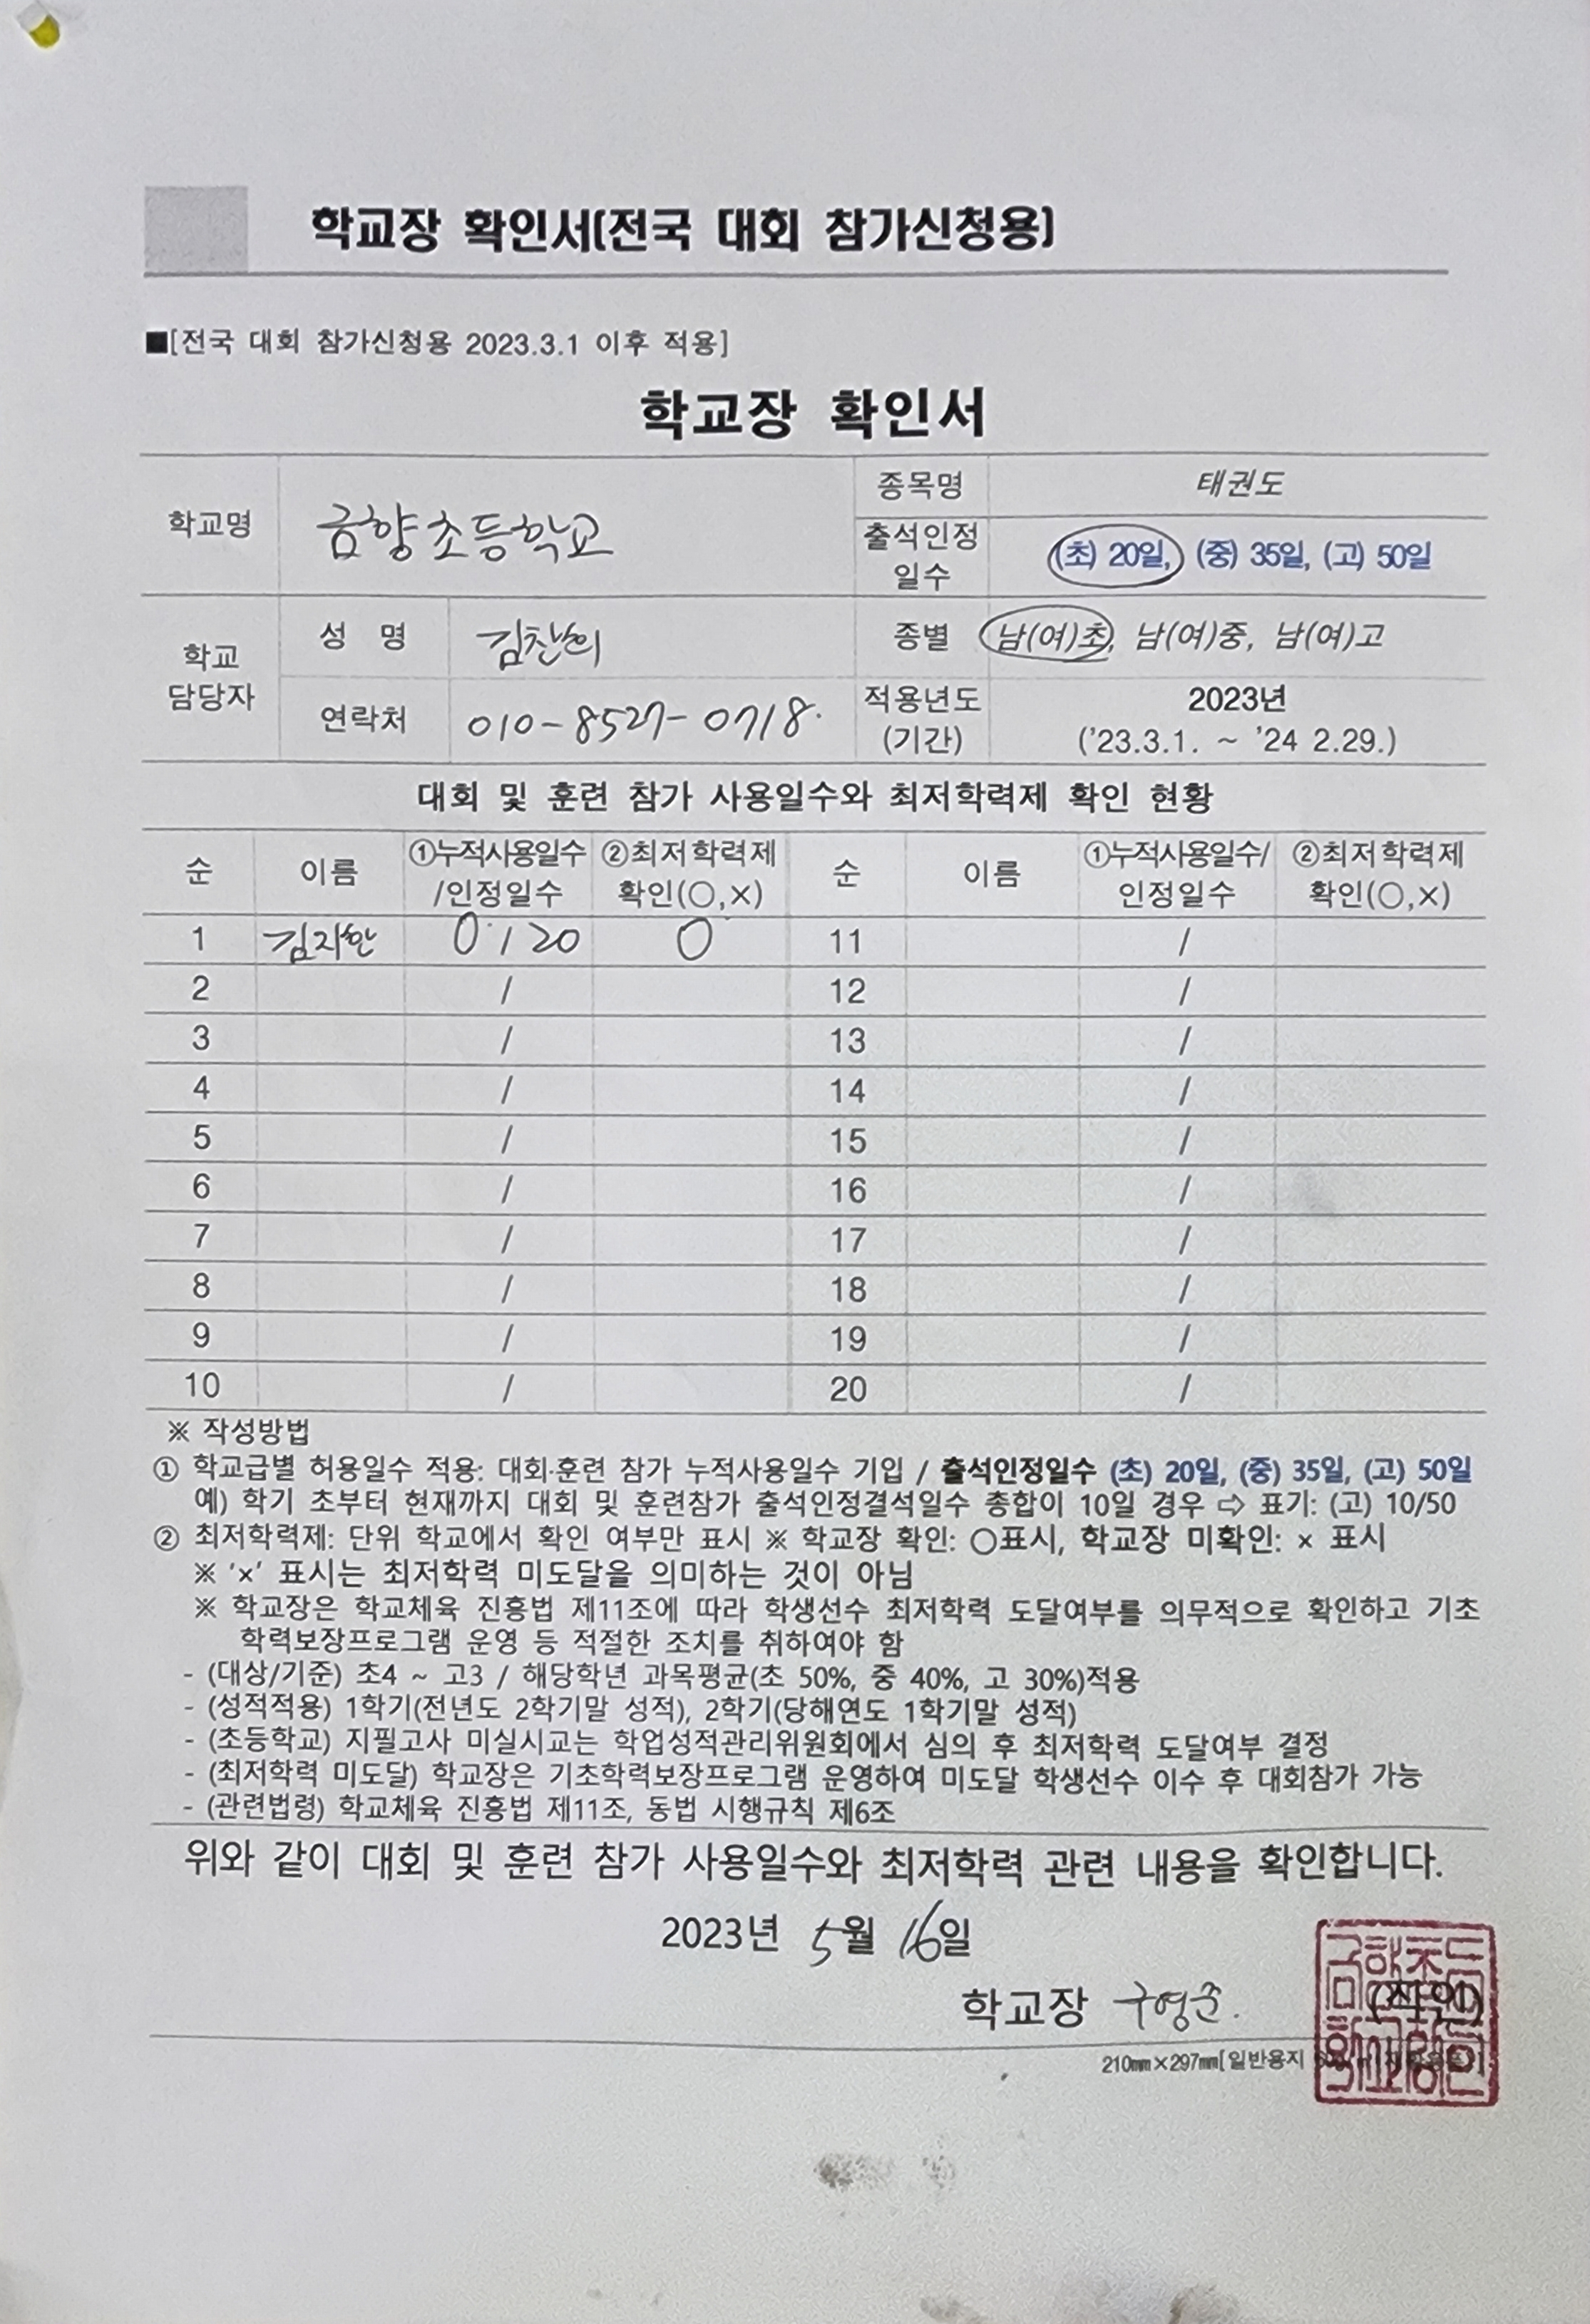 학교장 확인서(전국 대회 참가신청용)
■[전국 대회 참가신청용 2023.3.1 이후 적용]
학교장 확인서
학교명 금향초등학교 종목명 태권도
출석인정 일수 (초) 20일, (중) 35일, (고) 50일
학교 담당자 성 명 김찬희 종별 남(여)초, 남(여)중, 남(여)고
연락처 010-8527-0718. 적용년도 (기간) 2023년 ('23.3.1. ~ '24 2.29.)
대회 및 훈련 참가 사용일수와 최저학력제 확인 현황
순 이름 ①누적사용일수/인정일수 ②최저학력제 확인(○,×) 순 이름 ①누적사용일수/인정일수 ②최저학력제 확인(○,×)
1 김지한 0 / 20 O 11 /
2 / 12 /
3 / 13 /
4 / 14 /
5 / 15 /
6 / 16 /
7 / 17 /
8 / 18 /
9 / 19 /
10 / 20 /
※ 작성방법
① 학교급별 허용일수 적용: 대회·훈련 참가 누적사용일수 기입 / 출석인정일수 (초) 20일, (중) 35일, (고) 50일
예) 학기 초부터 현재까지 대회 및 훈련참가 출석인정결석일수 총합이 10일 경우 ⇨ 표기: (고) 10/50
② 최저학력제: 단위 학교에서 확인 여부만 표시 ※ 학교장 확인: ○표시, 학교장 미확인: × 표시
※ '×' 표시는 최저학력 미도달을 의미하는 것이 아님
※ 학교장은 학교체육 진흥법 제11조에 따라 학생선수 최저학력 도달여부를 의무적으로 확인하고 기초
학력보장프로그램 운영 등 적절한 조치를 취하여야 함
- (대상/기준) 초4 ~ 고3 / 해당학년 과목평균(초 50%, 중 40%, 고 30%)적용
- (성적적용) 1학기(전년도 2학기말 성적), 2학기(당해연도 1학기말 성적)
- (초등학교) 지필고사 미실시교는 학업성적관리위원회에서 심의 후 최저학력 도달여부 결정
- (최저학력 미도달) 학교장은 기초학력보장프로그램 운영하여 미도달 학생선수 이수 후 대회참가 가능
- (관련법령) 학교체육 진흥법 제11조, 동법 시행규칙 제6조
위와 같이 대회 및 훈련 참가 사용일수와 최저학력 관련 내용을 확인합니다.
2023년 5월 16일
학교장 구영준. (직인)
210㎜×297㎜[일반용지